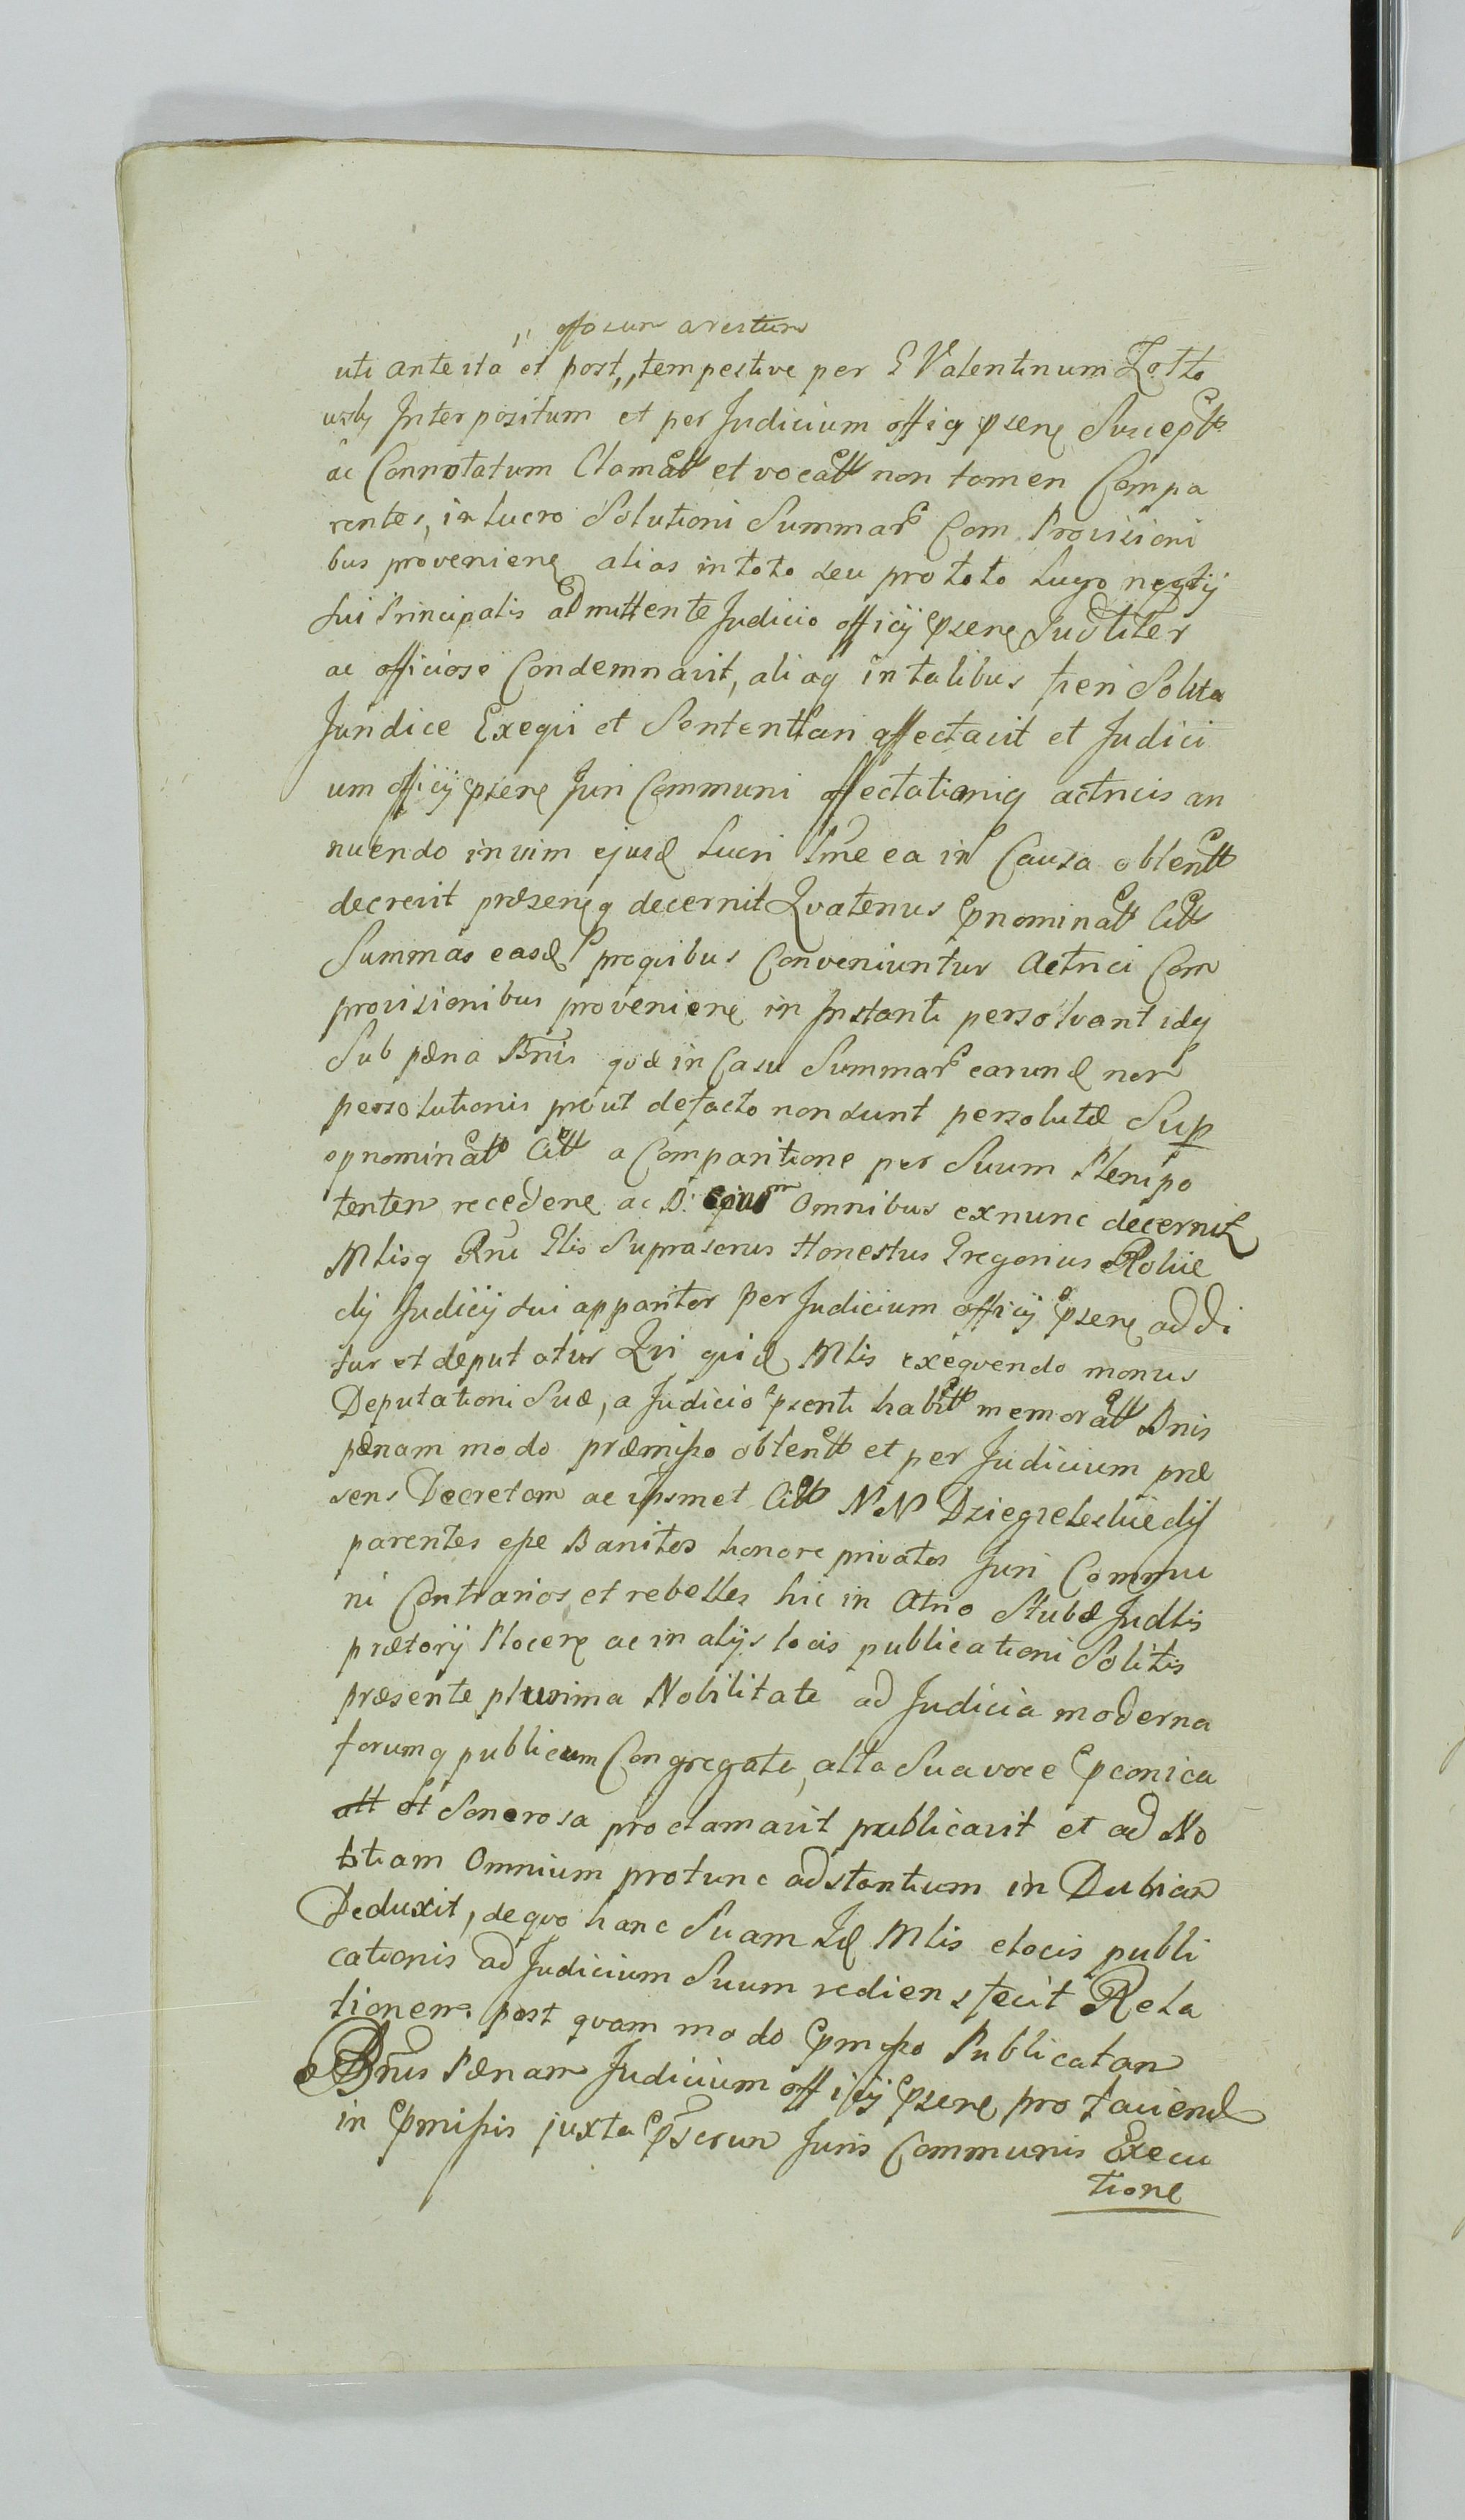 ,, offosum arestum
uti ante ita et post,, tempestive per G Valentinum Zotto
Interpositum et per Judicium officij psens Suscept
ac Connotatum Clamat et vocat non tamen Compa
rentes, in lucro Solutioni Summar Com Provisioni
bus proveniens alias in toto seu pro toto Lucro negotij
sui Principalis admittente Judicio officij psens Judtiter
ac officiose Condemnavit, aliaq in talibus fieri Solita
Jundice Exequi et Sententian affectavit et Judici
um officij psens Juri Communi affectationiq actricis an
nuendo in vim ejusd Lucri tme ea in Causa obtent
decrevit præsensq decernit Qvatenus pnominat Citt
Summas easd proqvibus Conveniuntur Actrici Com
provisionibus proveniens in Instanti persolvant idq
Sub pæna Bnis qvæ in Casu Summar earund non
persolutionis prout defacto non sunt persolutæ Sup
pnominat Citt a Comparitione per Suum Plenipo
tenten recedens ac B: Omnibus exnunc decernit
Mlisq Rni Glis Suprascrus Honestus Gregorius
dij Judicij sui apparitor per Judicium officij psens addi
tur et deputatur Qvi qvid Mlis exeqvendo monus
Deputationi Suæ, a Judicio psenti habitt memoratt Bnis
pænam modo præmisso obtent et per Judicium præ
sens Decretam ac ipsmet Citt NN Dziegieleskie dij
parentes esse Banitos honore privatos Juri Commu
ni Contrarios et rebelles hic in Atrio Stubæ Judlis
prætorij Plocens ac in alijs locis publicationi Solitis
præsente plurima Nobilitate ad Judicia moderna
forumq publicum Congregata, alta Sua voce pconica
att et Sonorosa proclamavit publicavit et ad No
titiam Omnium protunc adstantium in Dubian
Deduxit, deqvo hanc Suam Id Mlis elocis publi
cationis ad Judicium Suum rediens fecit Rela
tionem. post qvam modo pmisso Publicatan
Bnis Pænam Judicium officij psens pro faciend
in pmissis juxta pscrun Juris Communis Execu
tione